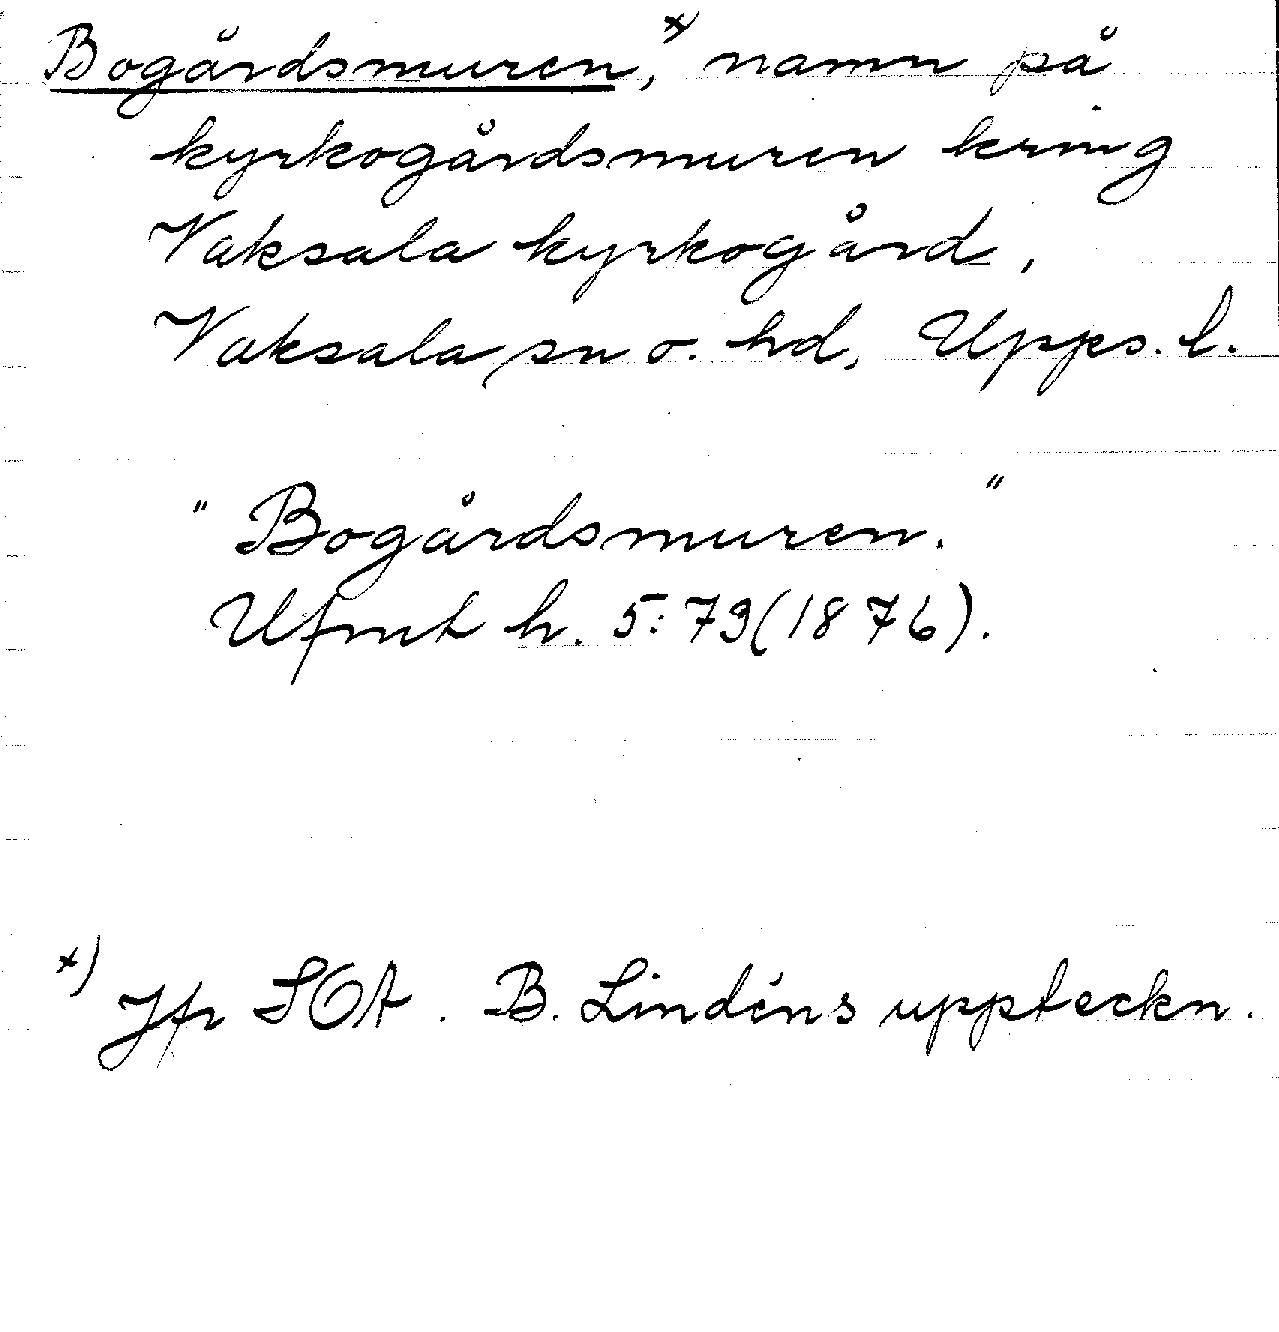 Bogårdsmuren, x) namn på
kyrkogårdsmuren kring
Vaksala kyrkogård,
Vaksala sn o. hd, Upps. l.
"Bogårdsmuren."
Ufmt h. 5:73(1876).
x) Jfr SOA. B. Lindéns uppteckn.